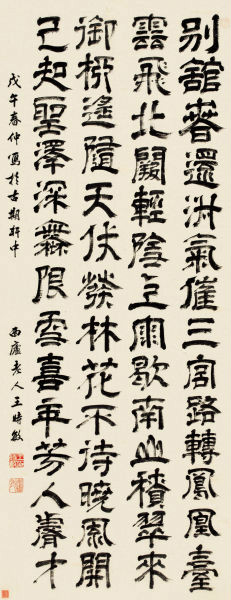 別舘春還淑氣催三宮路轉鳳凰臺
雲飛北闕輕陰 雨歇南山積翠來
御柳遙隨天仗發林花不待曉風開
已知聖澤深無限 喜年芳入睿才
戊午春仲寫於古期軒中
西廬老人王時敏